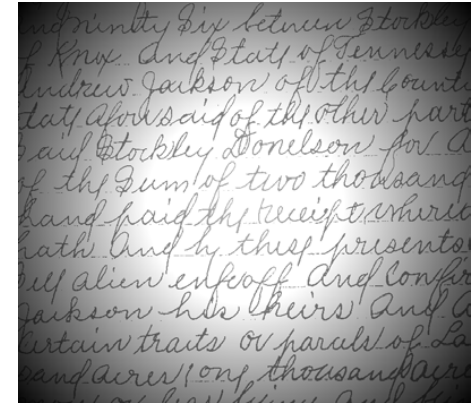 and ninety Six between Stockley
of Knox and State of Tennessee
Andrew Jackson of the Count
tate aforesaid of the other part
said Stockley Donelson for a
of the Sum of two thousand
hand paid the receipt where
hath and by these presents
sell alien enfeoff and Confir
Jackson his heirs and a
Certain traits or parcels of La
sand acres, one thousand acre